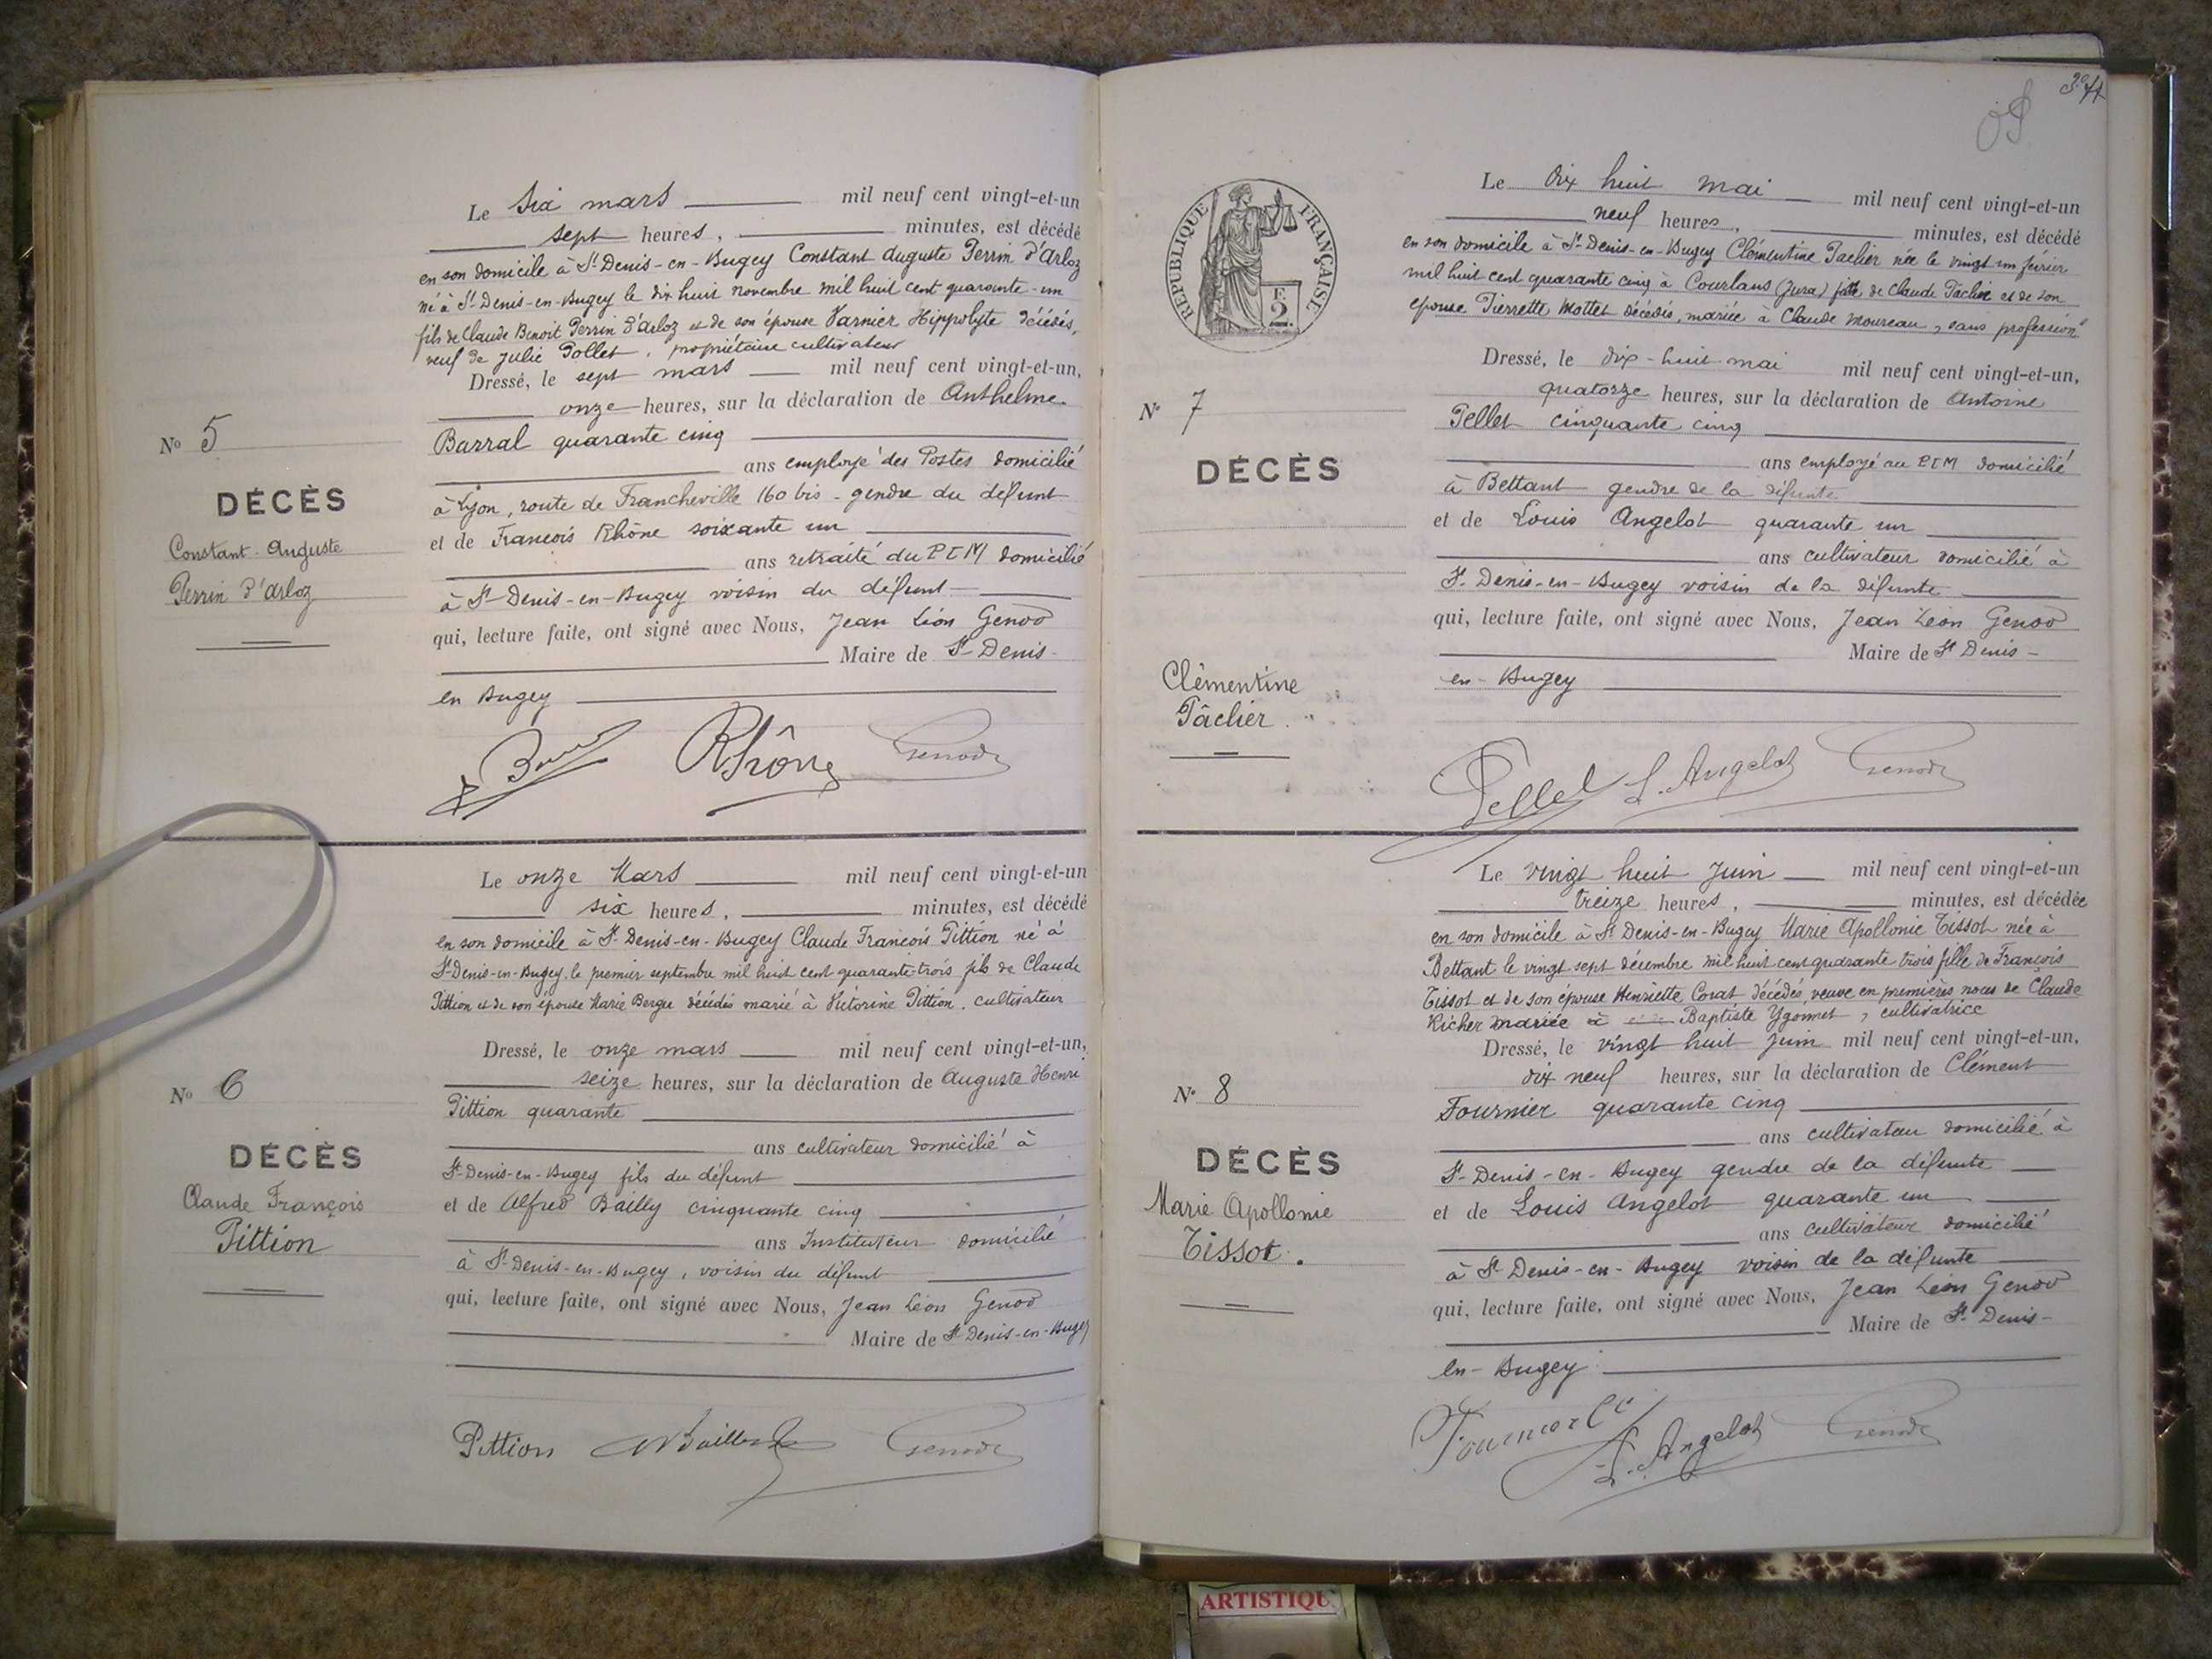 Le six mars mil neuf cent vingt-et-un
sept heures, minutes, est décédé
en son domicile à St Denis-en-Bugey Constant Auguste Perrin d'Arloz
né à St Denis-en-Bugey le dix huit novembre mil huit cent quarante-un
fils de Claude Benoit Perrin d'Arloz et de son épouse Varnier Hippolyte décédés,
veuf de Julie Pollet, propriétaire cultivateur
Dressé, le sept mars mil neuf cent vingt-et-un,
onze heures, sur la déclaration de Anthelme
Barral quarante cinq
ans employé des Postes domicilié
à Lyon, route de Francheville 160 bis - gendre du défunt
et de François Rhône soixante un
ans retraité du PLM domicilié
à St Denis-en-Bugey voisin du défunt
qui, lecture faite, ont signé avec Nous, Jean Léon Genod
Maire de St Denis-
en Bugey
Rhône Genod
No 5
DÉCÈS
Constant-Auguste
Perrin d'Arloz
Le onze Mars mil neuf cent vingt-et-un
six heures, minutes, est décédé
en son domicile à St Denis-en-Bugey Claude François Pittion né à
St Denis-en-Bugey le premier septembre mil huit cent quarante-trois fils de Claude
Pittion et de son épouse Marie Berger décédés marié à Victorine Pittion, cultivateur
Dressé, le onze mars mil neuf cent vingt-et-un,
seize heures, sur la déclaration de Auguste Henri
Pittion quarante
ans cultivateur domicilié à
St Denis-en-Bugey fils du défunt
et de Alfred Bailly cinquante cinq
ans Instituteur domicilié
à St Denis-en-Bugey, voisin du défunt
qui, lecture faite, ont signé avec Nous, Jean Léon Genod
Maire de St Denis-en-Bugey
Pittion Bailly Genod
No 6
DÉCÈS
Claude François
Pittion
RÉPUBLIQUE FRANÇAISE
F.
2
Le dix huit mai mil neuf cent vingt-et-un
neuf heures, minutes, est décédé
en son domicile à St Denis-en-Bugey Clémentine Taclier née le vingt un février
mil huit cent quarante cinq à Courlans (Jura) fille de Claude Taclier et de son
épouse Pierrette Mottet décédés, mariée à Claude Moureau, sans profession
Dressé, le dix-huit mai mil neuf cent vingt-et-un,
quatorze heures, sur la déclaration de Antoine
Pellet cinquante cinq
ans employé au PLM domicilié
à Bettant gendre de la défunte
et de Louis Angelot quarante un
ans cultivateur domicilié à
St Denis-en-Bugey voisin de la défunte
qui, lecture faite, ont signé avec Nous, Jean Léon Genod
Maire de St Denis-
en-Bugey
Pellet L. Angelot Genod
No 7
DÉCÈS
Clémentine
Tâclier
Le vingt huit Juin mil neuf cent vingt-et-un
treize heures, minutes, est décédée
en son domicile à St Denis-en-Bugey Marie Apollonie Tissot née à
Bettant le vingt sept décembre mil huit cent quarante trois fille de François
Tissot et de son épouse Henriette Corat décédés, veuve en premières noces de Claude
Richer mariée à Baptiste Ygonnet, cultivatrice
Dressé, le vingt huit juin mil neuf cent vingt-et-un,
dix neuf heures, sur la déclaration de Clément
Fournier quarante cinq
ans cultivateur domicilié à
St Denis-en-Bugey gendre de la défunte
et de Louis Angelot quarante un
ans cultivateur domicilié
à St Denis-en-Bugey voisin de la défunte
qui, lecture faite, ont signé avec Nous, Jean Léon Genod
Maire de St Denis-
en-Bugey
L. Angelot Genod
No 8
DÉCÈS
Marie Apollonie
Tissot.
ARTISTIQU